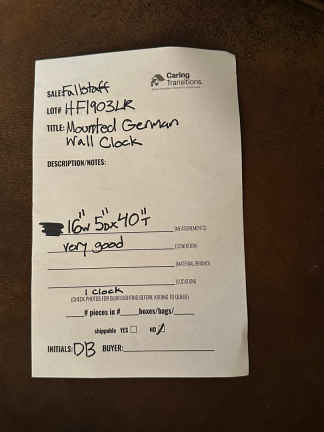 Caring
Transitions.
SALE: Fallstaff
LOT# HF1903LR
TITLE: Mounted German
Wall Clock
DESCRIPTION/NOTES:
16"W 5"D X 40"T MEASUREMENTS
very good CONDITION
MATERIAL/BRAND
LOCATION
1 Clock
(CHECK PHOTOS FOR QUANTITY BEFORE WRITING TO GUIDE)
# pieces in # boxes/bags/
shippable YES NO
INITIALS: DB BUYER: